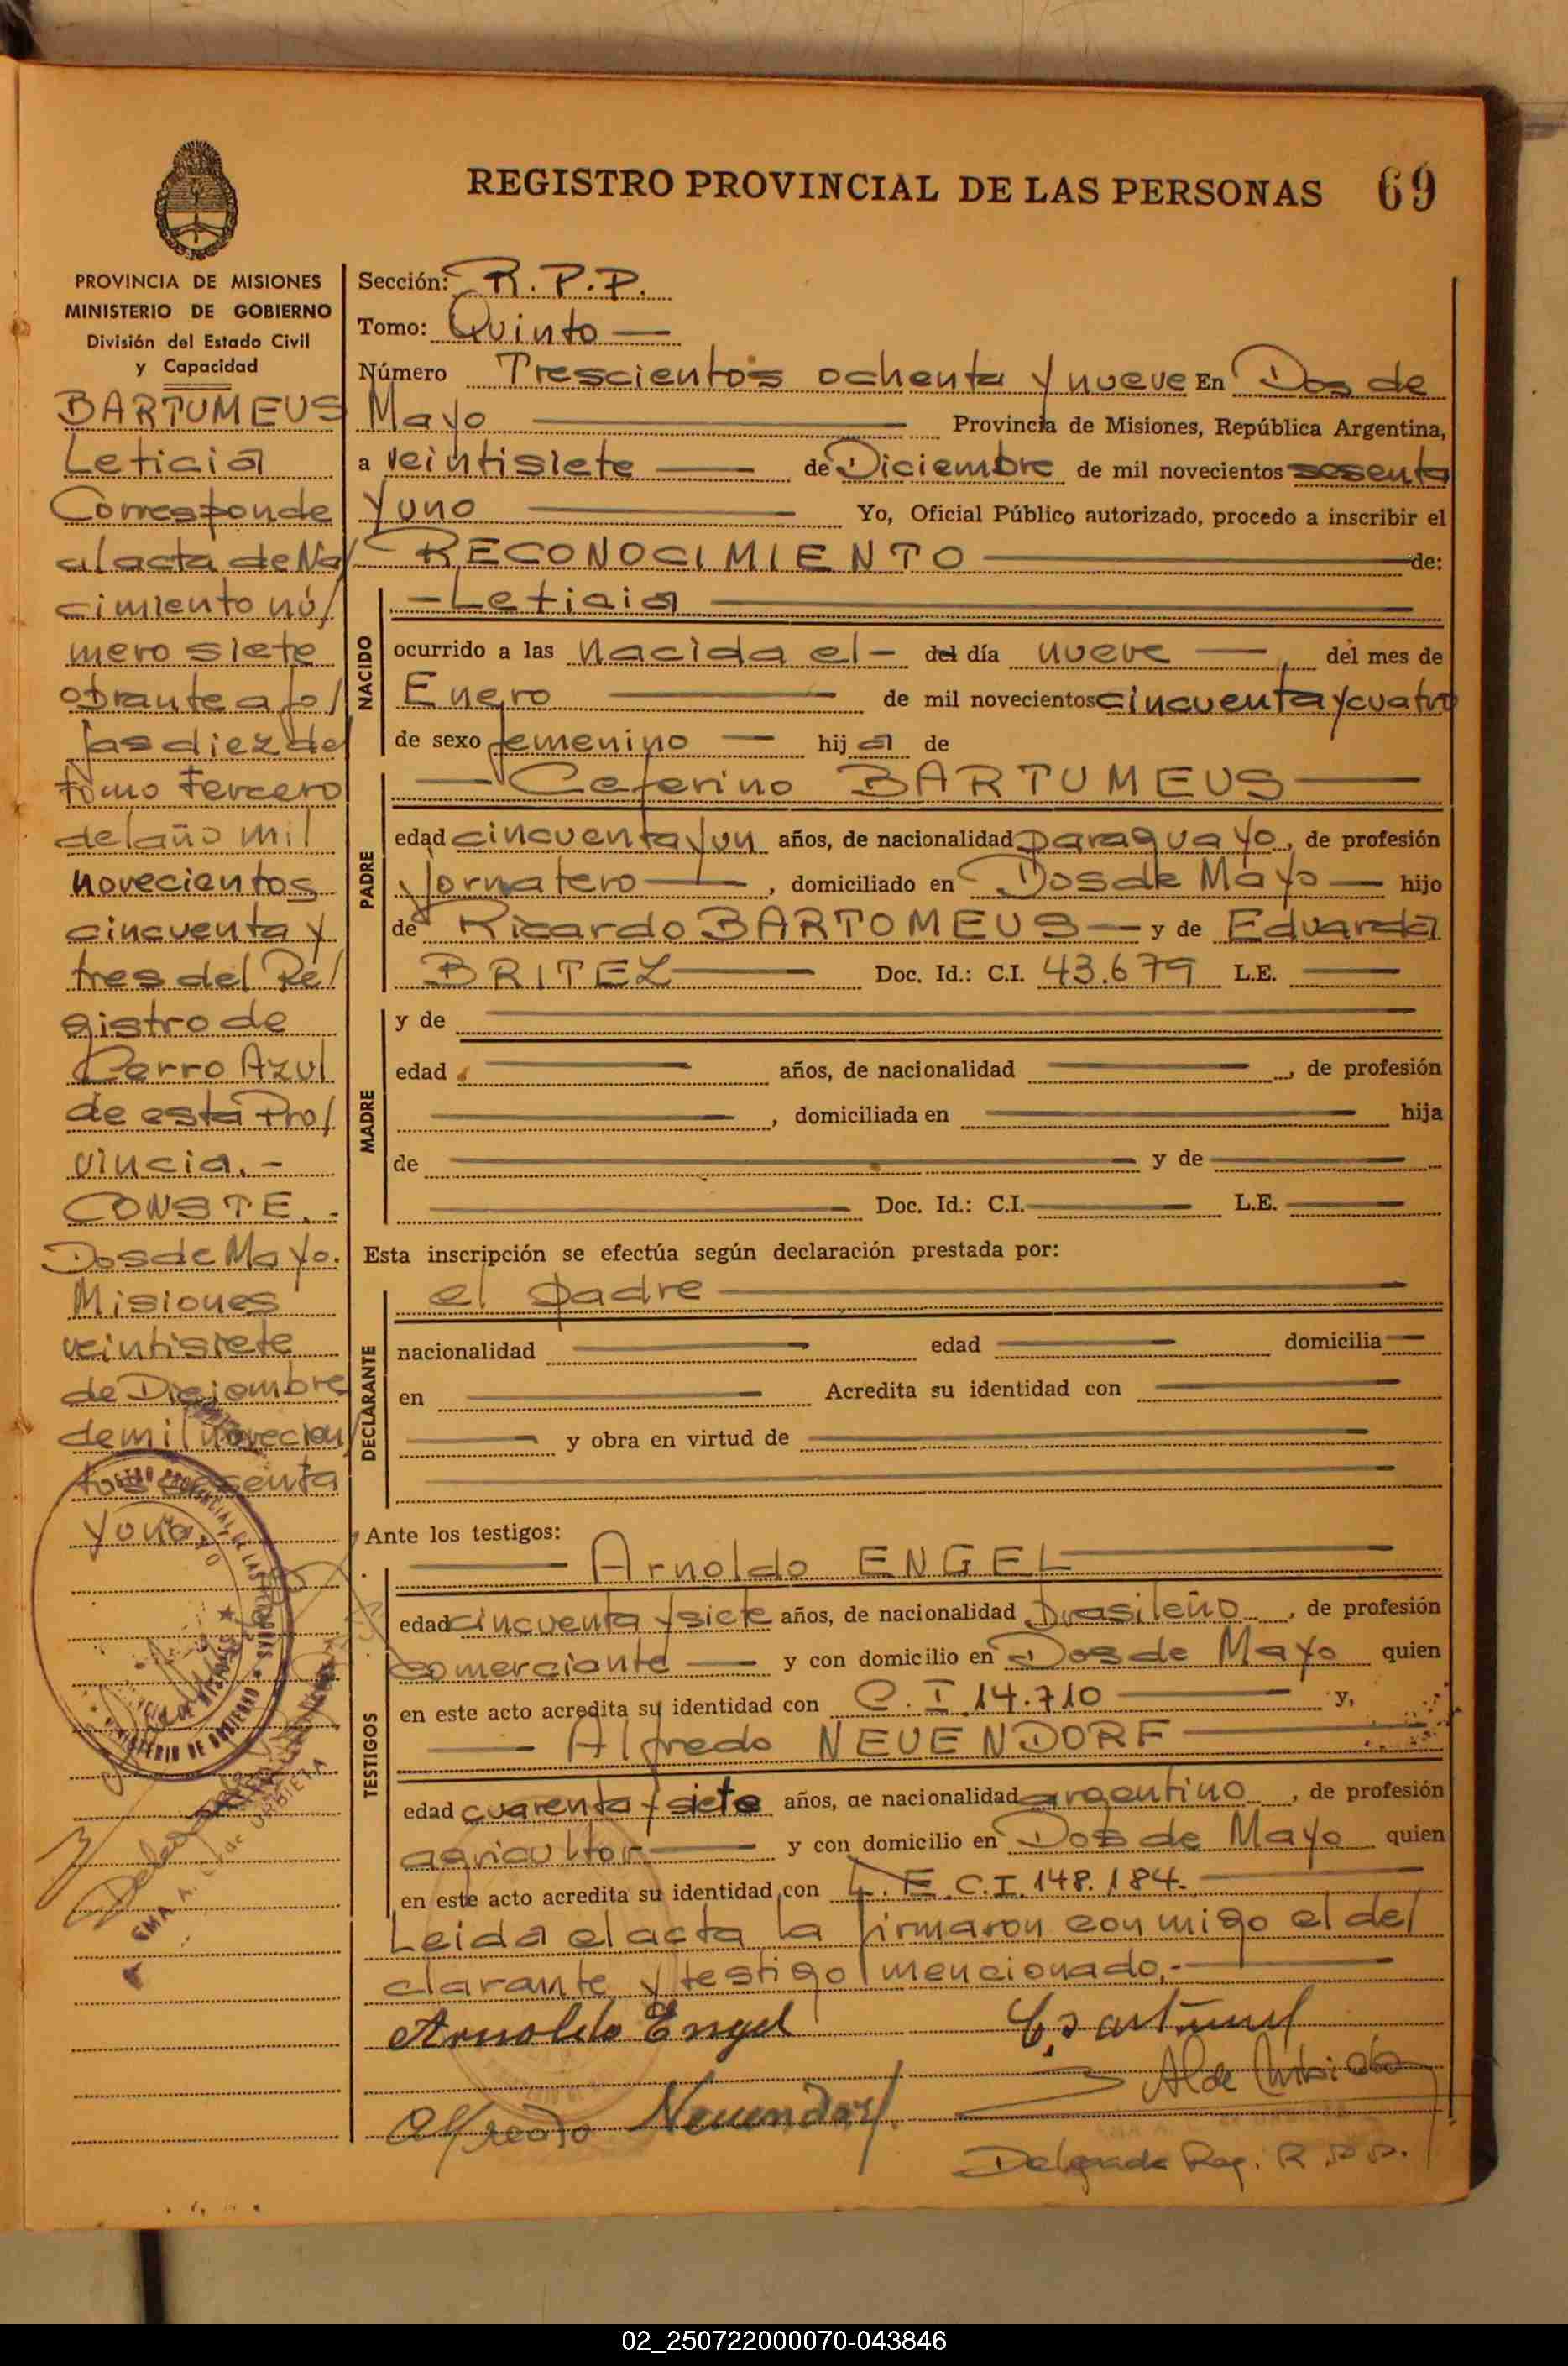 REGISTRO PROVINCIAL DE LAS PERSONAS 69
PROVINCIA DE MISIONES
MINISTERIO DE GOBIERNO
División del Estado Civil
y Capacidad
BARTUMEUS
Leticia
Corresponde
al acta de Na/
cimiento nú/
mero siete
obrante a fo/
jas diez del
tomo tercero
del año mil
novecientos
cincuenta y
tres del Re/
gistro de
Cerro Azul
de esta Pro/
vincia.-
CONSTE.-
Dos de Mayo.
Misiones
veintisiete
de Diciembre
de mil novecien/
tos sesenta
y uno
Sección: R.P.P.
Tomo: Quinto
Número Trescientos ochenta y nueve En Dos de
Mayo Provincia de Misiones, República Argentina,
a veintisiete de Diciembre de mil novecientos sesenta
y uno Yo, Oficial Público autorizado, procedo a inscribir el
RECONOCIMIENTO de:
NACIDO
-Leticia
ocurrido a las nacida el - del día nueve, del mes de
Enero de mil novecientos cincuenta y cuatro
de sexo femenino hij a de
PADRE
Ceferino BARTUMEUS
edad cincuenta y un años, de nacionalidad paraguayo, de profesión
Jornalero, domiciliado en Dos de Mayo hijo
de Ricardo BARTOMEUS y de Eduarda
BRITEZ Doc. Id.: C.I. 43.679 L.E.
MADRE
y de
edad años, de nacionalidad , de profesión
, domiciliada en hija
de y de
Doc. Id.: C.I. L.E.
Esta inscripción se efectúa según declaración prestada por:
DECLARANTE
el padre
nacionalidad edad domicilia
en Acredita su identidad con
y obra en virtud de
Ante los testigos:
TESTIGOS
Arnoldo ENGEL
edad cincuenta y siete años, de nacionalidad brasileño, de profesión
comerciante y con domicilio en Dos de Mayo quien
en este acto acredita su identidad con C.I. 14.710 y,
Alfredo NEUENDORF
edad cuarenta y siete años, de nacionalidad argentino, de profesión
agricultor y con domicilio en Dos de Mayo quien
en este acto acredita su identidad con L.E. C.I. 148.184.
Leida el acta la firmaron conmigo el de/
clarante y testigo mencionado.-
Arnoldo Engel
Alfredo Neuendorf
Delgada Reg. R.P.P.
02_250722000070-043846